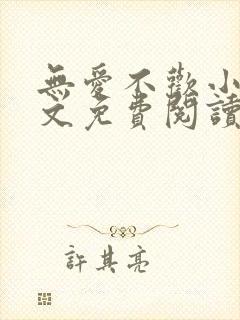 無愛不歡小
文免費閱讀
許其亮